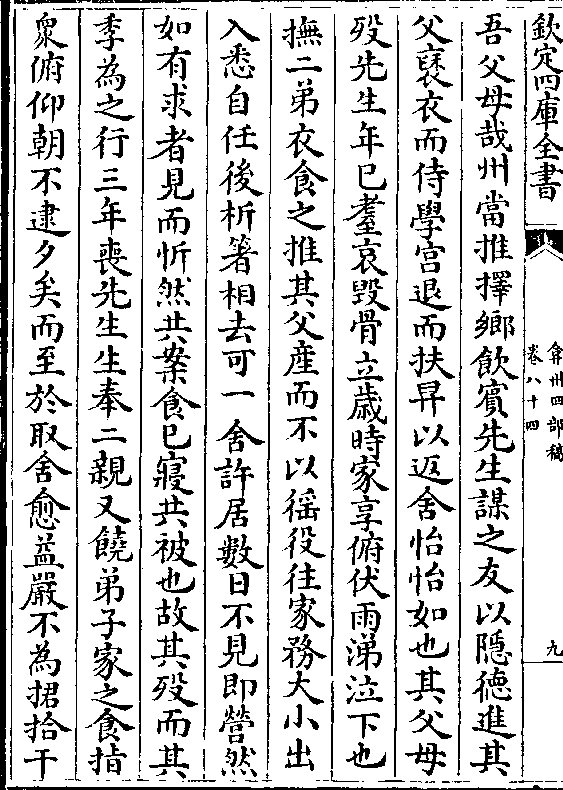 欽定四庫全書
弇州四部稿
卷八十四
九
吾父母哉州當推擇鄉飲賓先生謀之友以隱德進其
父褎衣而侍學宮退而扶舁以返舍怡怡如也其父母
歿先生年已耋哀毀骨立歲時家享俯伏雨涕泣下也
撫二弟衣食之推其父産而不以徭役往家務大小出
入悉自任後析箸相去可一舍許居數日不見即營然
如有求者見而忻然共案食已寢共被也故其歿而其
季為之行三年喪先生生奉二親又饒弟子家之食指
衆俯仰朝不逮夕矣而至於取舍愈益嚴不為捃拾干